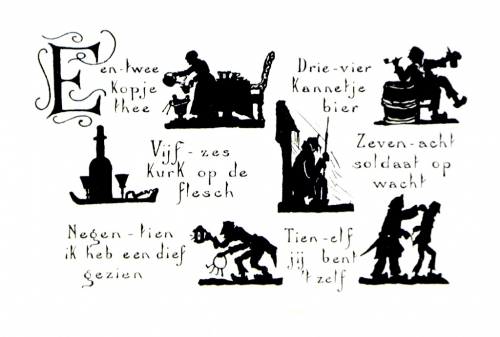 Een-twee
Kopje
thee
Drie-vier
Kannetje
bier
Vijf-zes
Kurk op de
flesch
Zeven-acht
soldaat op
wacht
Negen-tien
ik heb een dief
gezien
Tien-elf
jij bent
't zelf